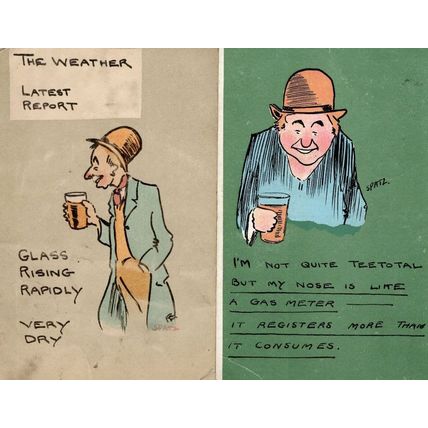 THE WEATHER
LATEST
REPORT
GLASS
RISING
RAPIDLY
VERY
DRY
SPATZ
SPATZ.
I'M NOT QUITE TEETOTAL
BUT MY NOSE IS LIKE
A GAS METER
IT REGISTERS MORE THAN
IT CONSUMES.